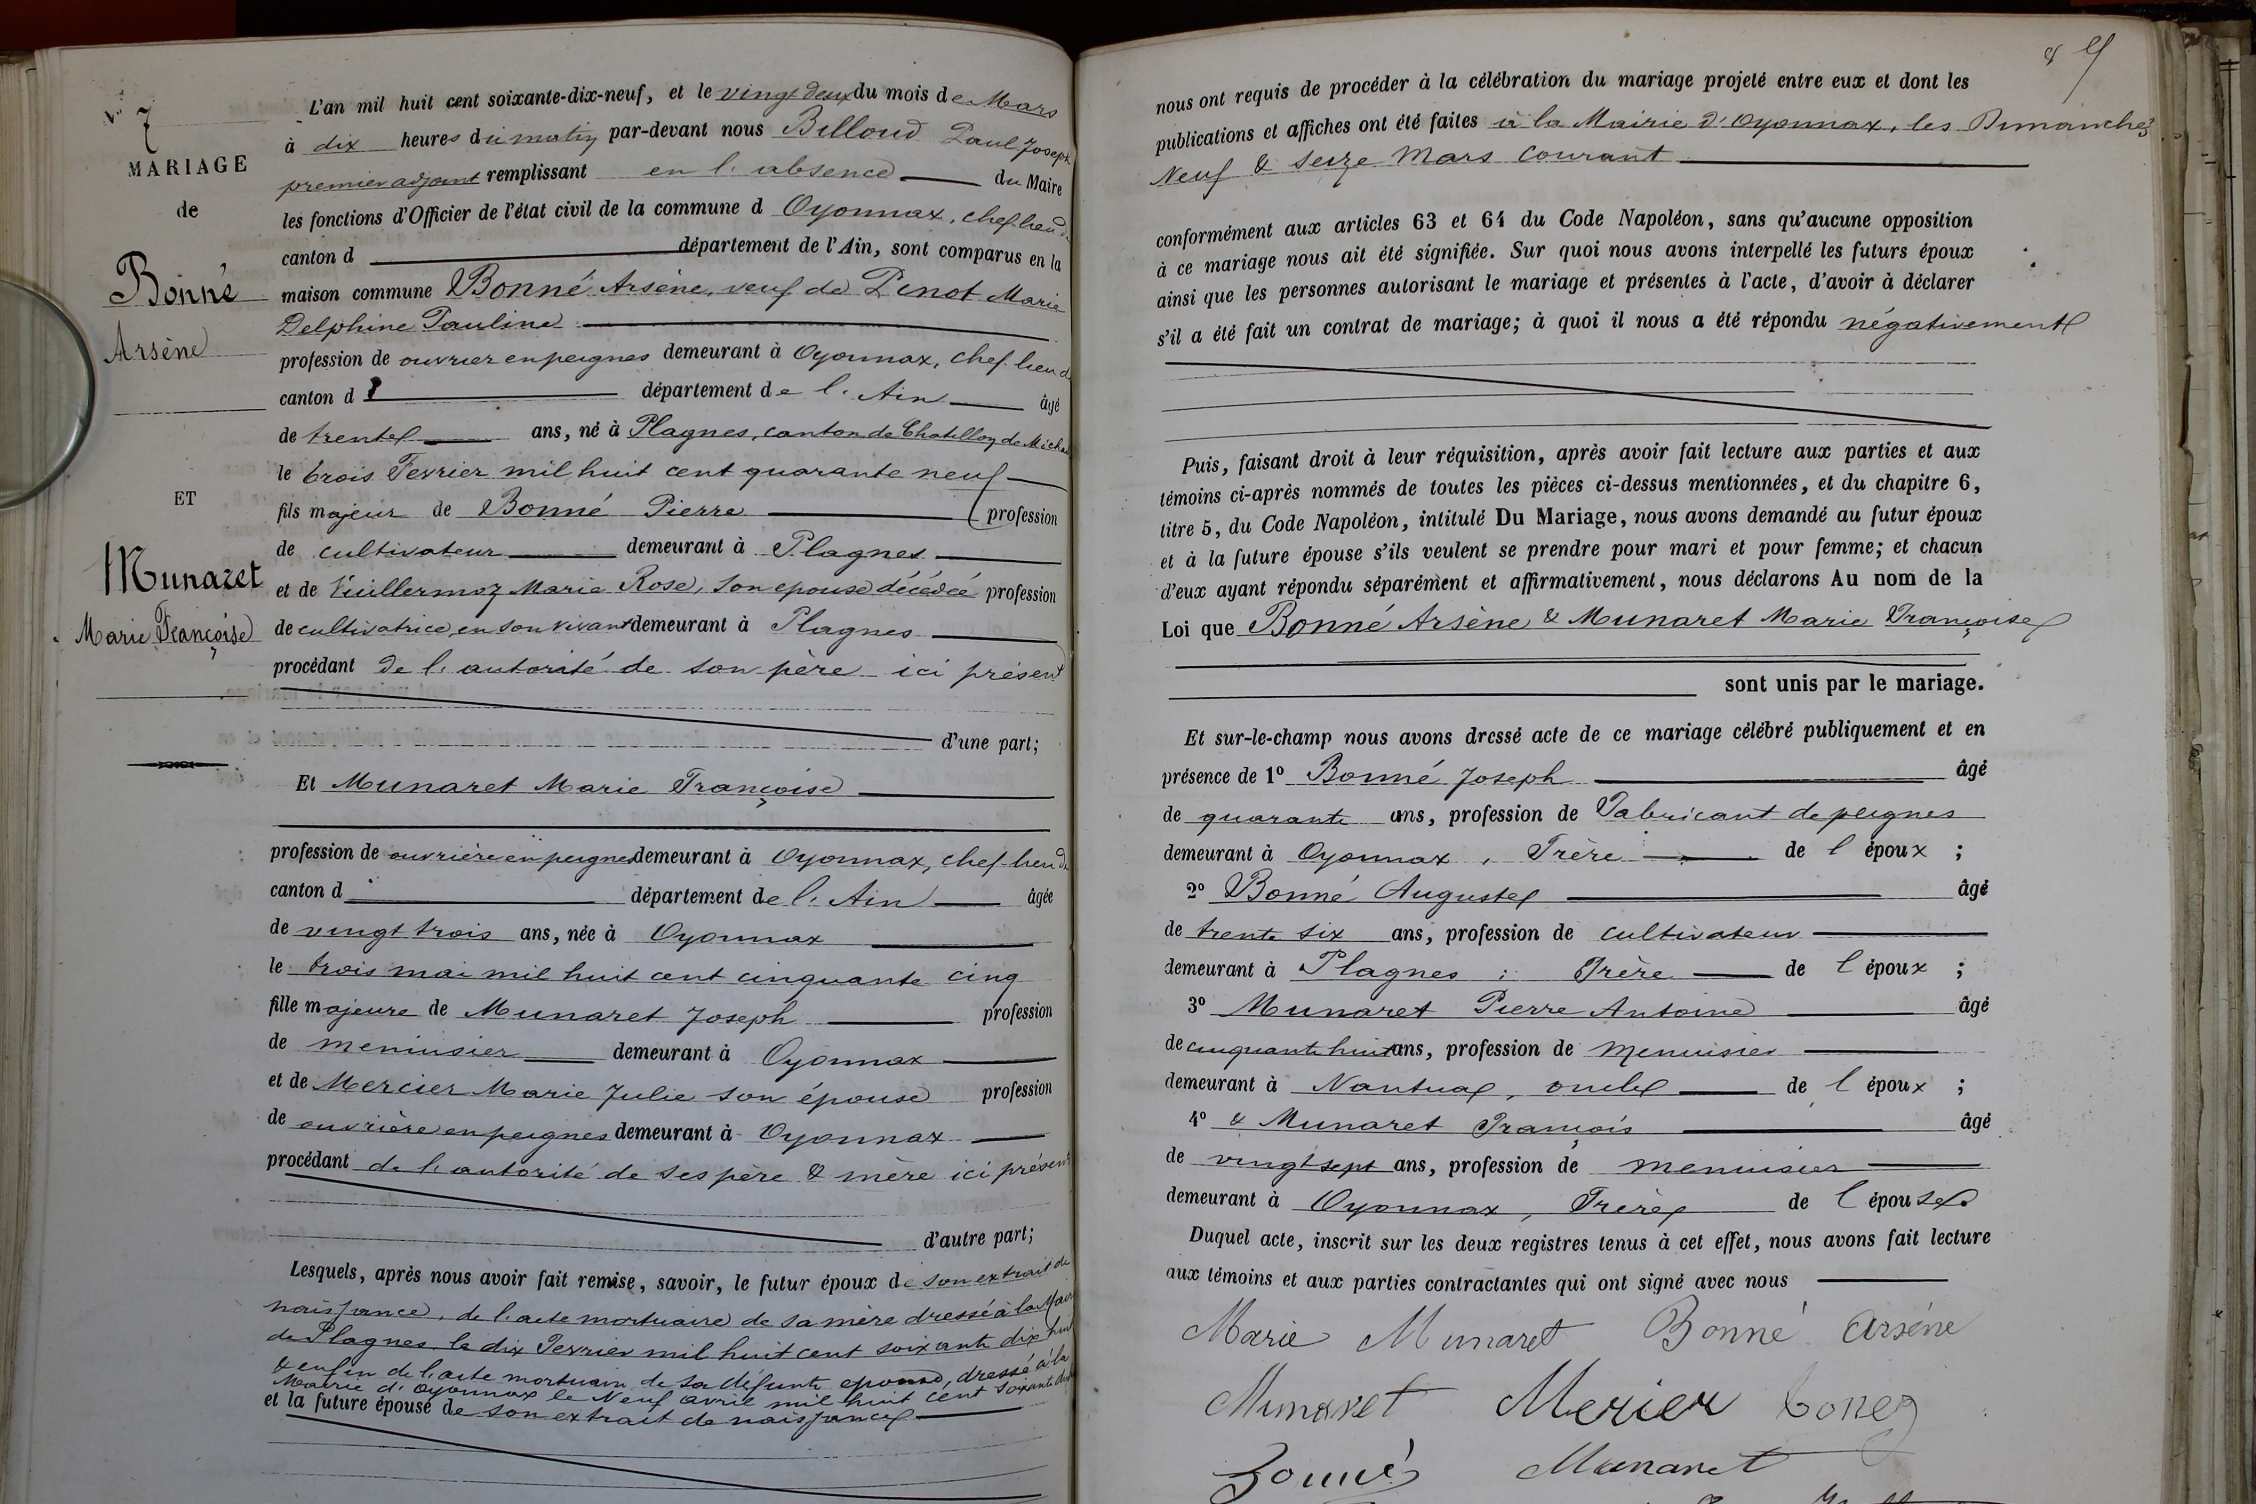 N° 7
MARIAGE
de
Bonné
Arsène
ET
Munaret
Marie Françoise
L'an mil huit cent soixante-dix-neuf, et le vingt deux du mois de Mars
à dix heures du matin par-devant nous Billoud Paul Joseph
premier adjoint remplissant en l'absence du Maire
les fonctions d'Officier de l'état civil de la commune d Oyonnax, chef-lieu de
canton d département de l'Ain, sont comparus en la
maison commune Bonné Arsène, veuf de Penot Marie
Delphine Pauline
profession de ouvrier en peignes demeurant à Oyonnax, chef-lieu de
canton d département de l'Ain âgé
de trente ans, né à Plagnes, canton de Chatillon de Michaille
le trois Fevrier mil huit cent quarante neuf
fils majeur de Bonné Pierre profession
de cultivateur demeurant à Plagnes
et de Vuillermoz Marie Rose, son epouse décédée profession
de cultivatrice en son vivant demeurant à Plagnes
procédant de l'autorité de son père ici présent
d'une part;
Et Munaret Marie Françoise
profession de ouvrière en peignes demeurant à Oyonnax, chef-lieu de
canton d département de l'Ain âgée
de vingt trois ans, née à Oyonnax
le trois mai mil huit cent cinquante cinq
fille majeure de Munaret Joseph profession
de menuisier demeurant à Oyonnax
et de Mercier Marie Julie son épouse profession
de ouvrière en peignes demeurant à Oyonnax
procédant de l'autorité de ses père & mère ici présent
d'autre part;
Lesquels, après nous avoir fait remise, savoir, le futur époux de son extrait de
naissance, de l'acte mortuaire de sa mère dressé à la Mairie
de Plagnes le dix Fevrier mil huit cent soixante dix huit
& enfin de l'acte mortuaire de sa défunte epouse, dressé à la
Mairie d'Oyonnax le Neuf avril mil huit cent soixante
et la future épouse de son extrait de naissance
nous ont requis de procéder à la célébration du mariage projeté entre eux et dont les
publications et affiches ont été faites à la Mairie d'Oyonnax, les Dimanches
Neuf & seize Mars courant
conformément aux articles 63 et 64 du Code Napoléon, sans qu'aucune opposition
à ce mariage nous ait été signifiée. Sur quoi nous avons interpellé les futurs époux
ainsi que les personnes autorisant le mariage et présentes à l'acte, d'avoir à déclarer
s'il a été fait un contrat de mariage; à quoi il nous a été répondu négativement
Puis, faisant droit à leur réquisition, après avoir fait lecture aux parties et aux
témoins ci-après nommés de toutes les pièces ci-dessus mentionnées, et du chapitre 6,
titre 5, du Code Napoléon, intitulé Du Mariage, nous avons demandé au futur époux
et à la future épouse s'ils veulent se prendre pour mari et pour femme; et chacun
d'eux ayant répondu séparément et affirmativement, nous déclarons Au nom de la
Loi que Bonné Arsène & Munaret Marie Françoise
sont unis par le mariage.
Et sur-le-champ nous avons dressé acte de ce mariage célébré publiquement et en
présence de 1° Bonné Joseph âgé
de quarante ans, profession de Fabricant de peignes
demeurant à Oyonnax, Frère de l époux ;
2° Bonné Auguste âgé
de trente six ans, profession de cultivateur
demeurant à Plagnes : Frère de l époux ;
3° Munaret Pierre Antoine âgé
de cinquante huit ans, profession de Menuisier
demeurant à Nantua, oncle de l époux ;
4° & Munaret François âgé
de vingt sept ans, profession de menuisier
demeurant à Oyonnax, Frère de l épouse.
Duquel acte, inscrit sur les deux registres tenus à cet effet, nous avons fait lecture
aux témoins et aux parties contractantes qui ont signé avec nous
Marie Munaret Bonné Arsène
Munaret Merier
Bonné Munaret